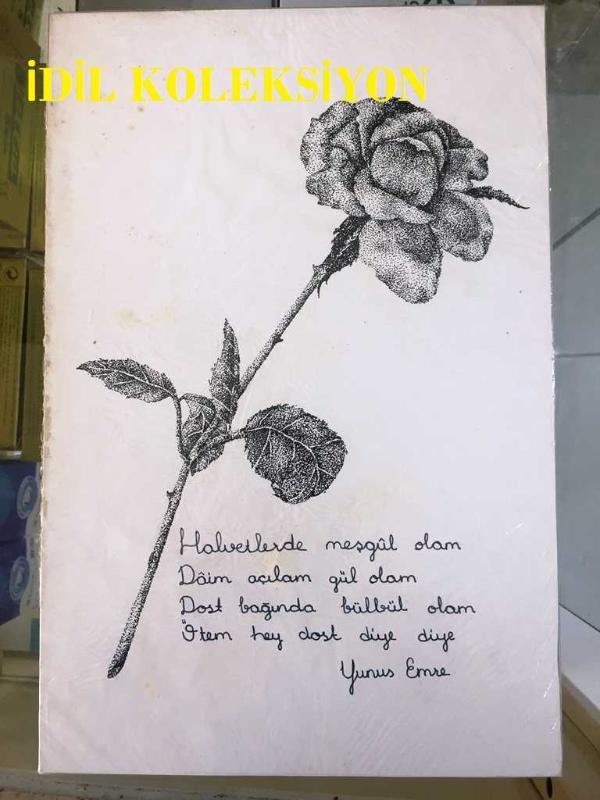 İDİL KOLEKSİYON
Halvetlerde meşgûl olam
Dâim açılam gül olam
Dost bağında bülbül olam
Ötem hey dost diye diye
Yunus Emre